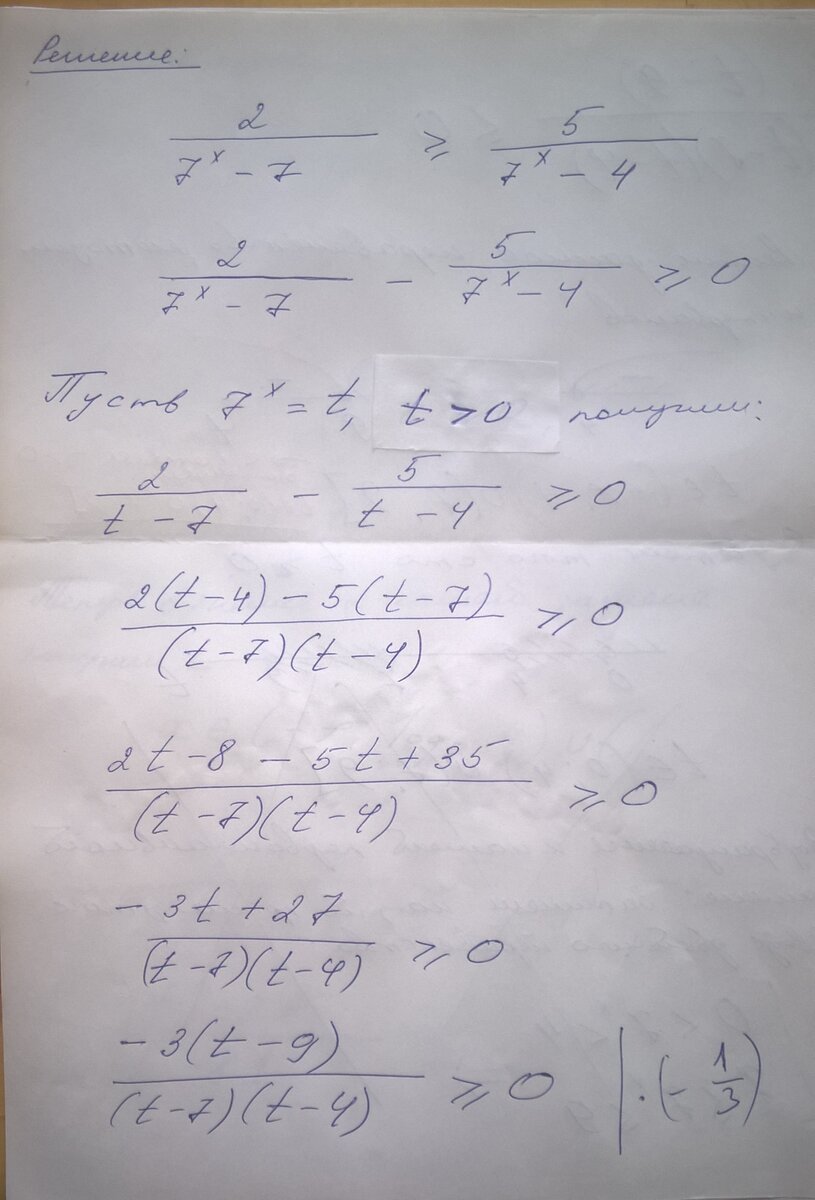 Решение:
2/(7^x - 7) ≥ 5/(7^x - 4)
2/(7^x - 7) - 5/(7^x - 4) ≥ 0
Пуств 7^x = t, t > 0 получим:
2/(t - 7) - 5/(t - 4) ≥ 0
(2(t-4) - 5(t-7))/((t-7)(t-4)) ≥ 0
(2t - 8 - 5t + 35)/((t-7)(t-4)) ≥ 0
(-3t + 27)/((t-7)(t-4)) ≥ 0
(-3(t-9))/((t-7)(t-4)) ≥ 0 | ·(-1/3)